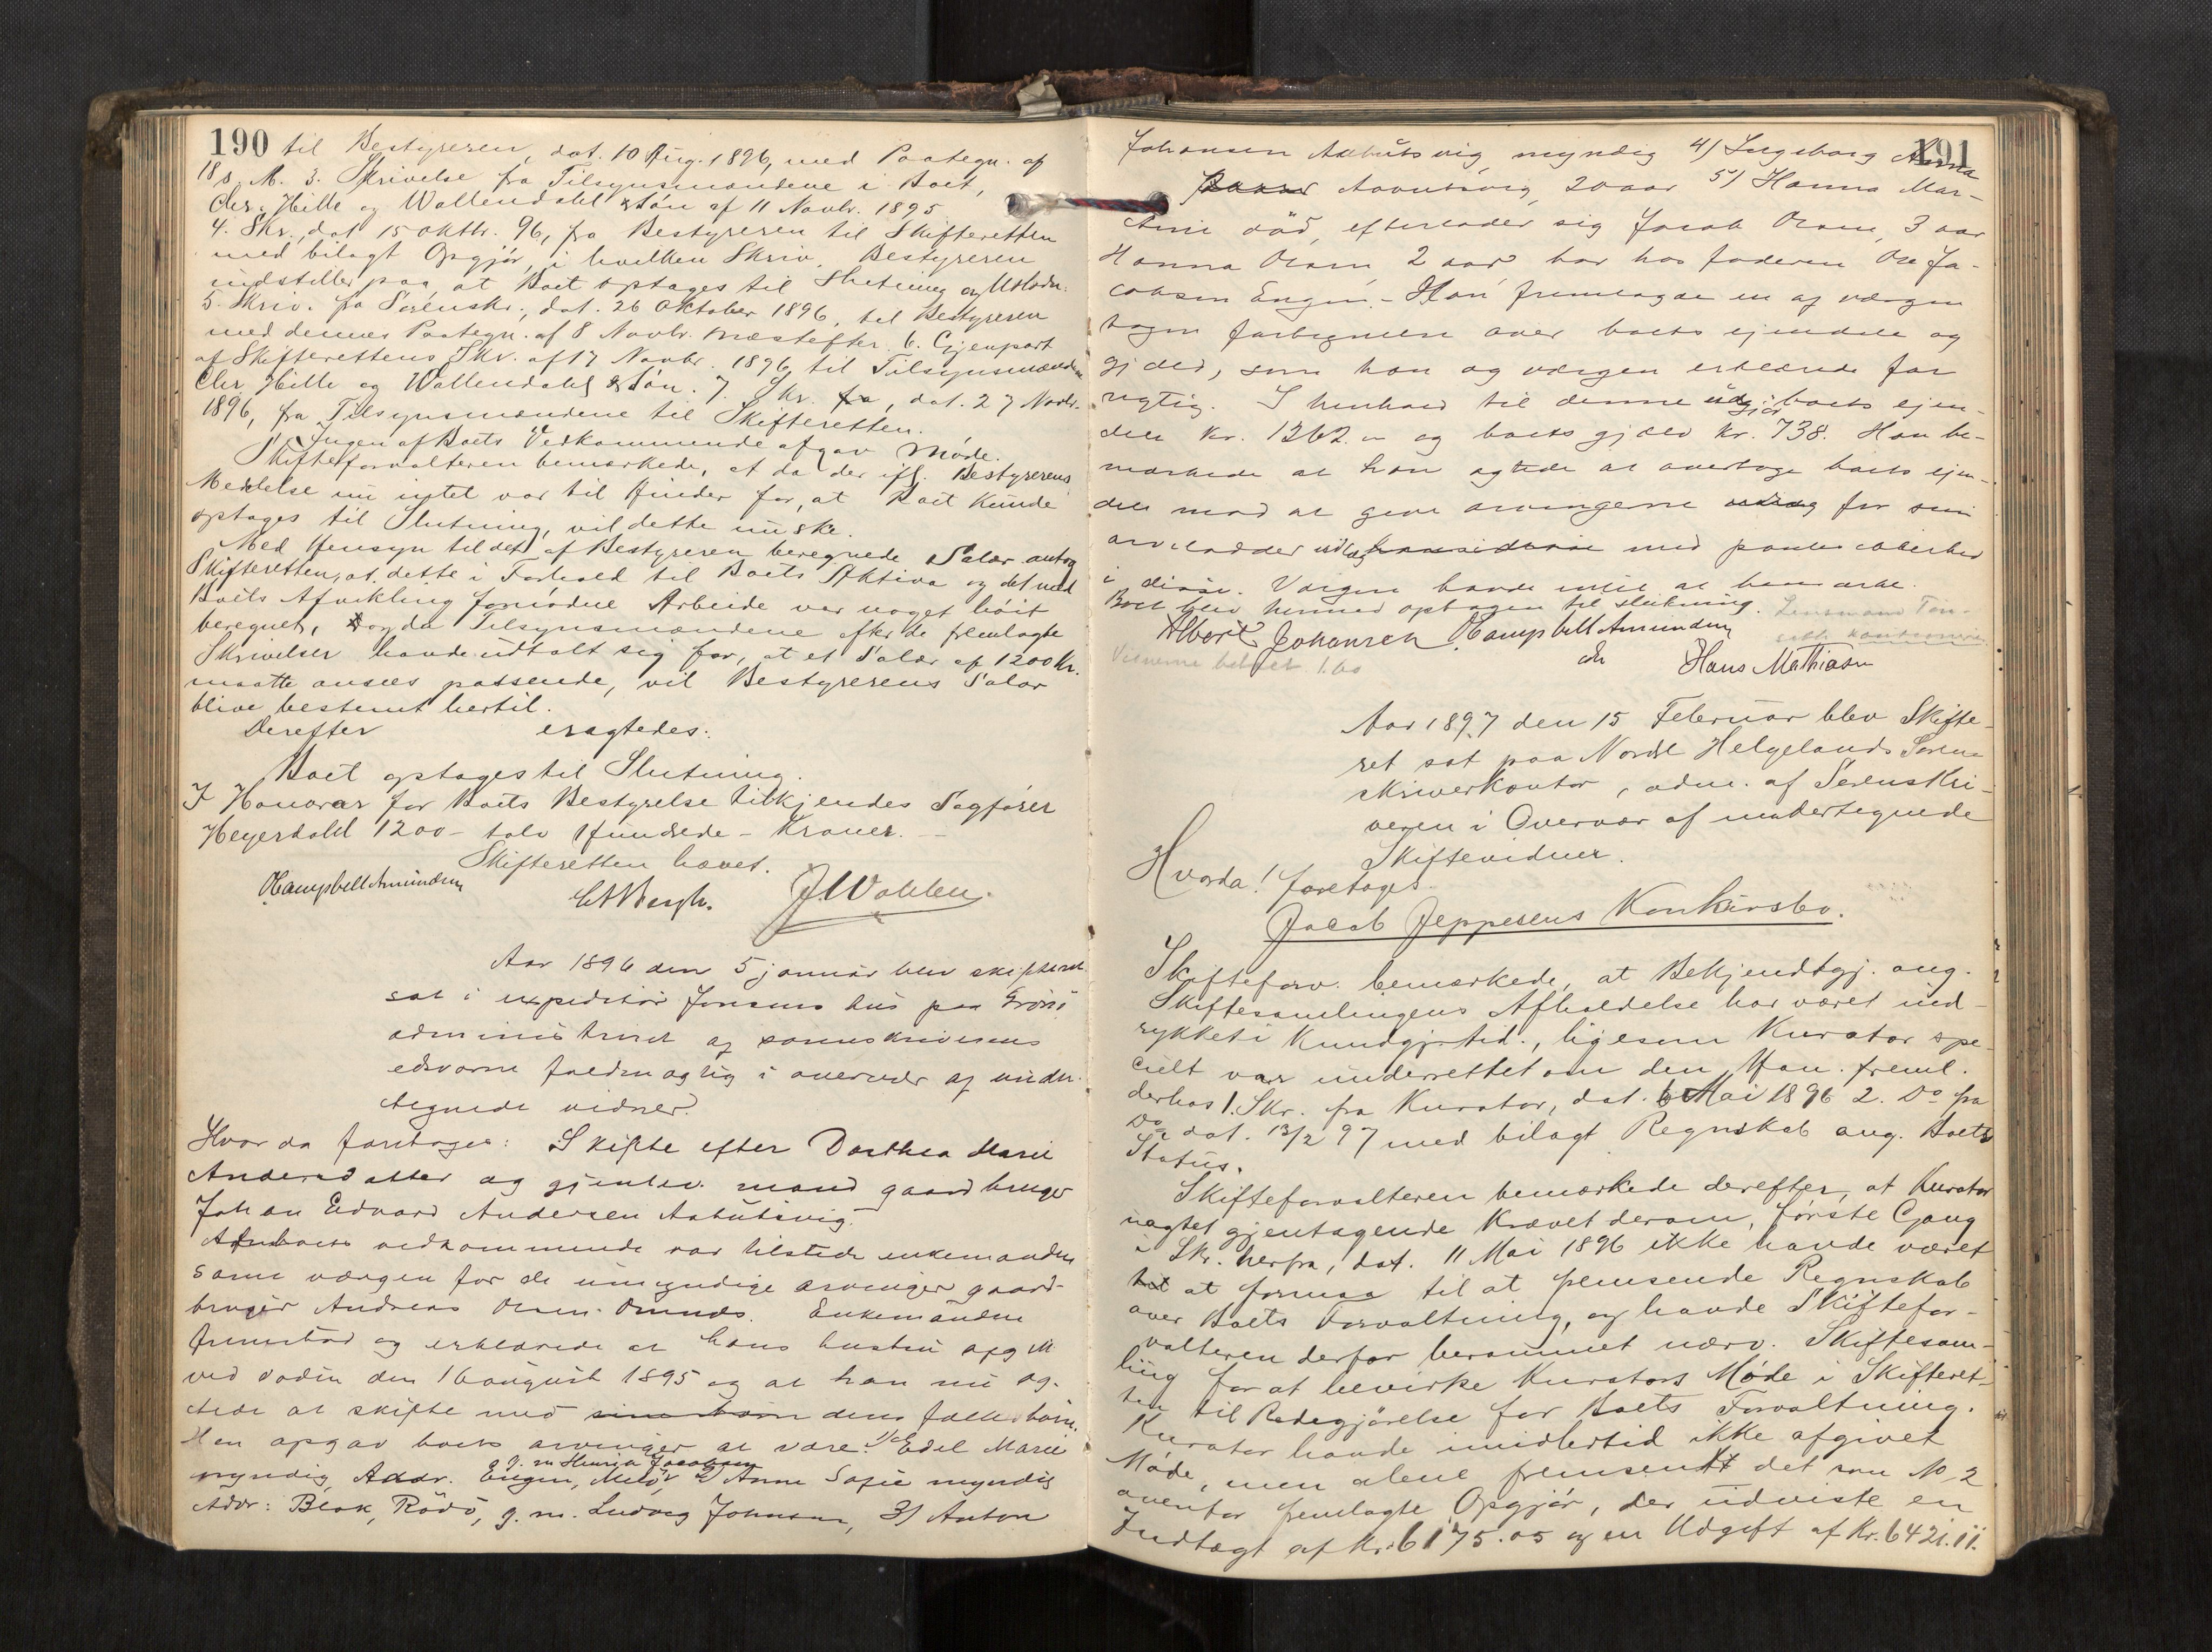 190 til Bestyreren, dat. 10 Aug. 1896, med Paategn. af
18 s. M. 3. Skrivelse fra Tilsynsmændene i Boet,
Chr. Hille og Wallendahl & Søn af 11 Novbr. 1895
4. Skr., dat 15 oktbr. 96, fra Bestyreren til Skifteretten
med bilagt Opgjør, i hvilken Skriv. Bestyreren
indstiller paa, at Boet optages til Slutning og Utlodn.
5. Skriv. fra Sorenskr., dat. 26 Oktober 1896, til Bestyreren
med dennes Paategn. af 8 Novbr. næstefter. 6. Gjenpart
af Skifterettens Skr. af 17 Novbr. 1896 til Tilsynsmændene
Chr Hille og Wallendahl & Søn. 7. Skr. fra, dat. 27 Novbr.
1896, fra Tilsynsmændene til Skifteretten.
Ingen af Boets Vedkommende afgav Møde.
Skifteforvalteren bemærkede, at da der ifl. Bestyrerens
Meddelse nu intet var til Hinder for, at Boet kunde
optages til Slutning, vil dette nu ske.
Med Hensyn til det af Bestyreren beregnede Salær antog
Skifteretten, at dette i Forhold til Boets Aktiva og det med
Boets Afvikling fornødne Arbeide var noget høit
beregnet, og da Tilsynsmændene efter de fremlagte
Skrivelser havde udtalt sig for, at et Salær af 1200 Kr.
maatte ansees passende, vil Bestyrerens Salær
blive bestemt hertil.
Derefter eragtedes:
Boet optages til Slutning.
I Honorar for Boets Bestyrelse tilkjendes Sagfører
Heyerdahl 1200 – tolv Hundrede – Kroner. –
Skifteretten hævet.
O Campbell Amundsen
Aar 1896 den 5 januar blev skifteret
sat i expeditør Jensens hus paa Grönö
administreret af sorenskriverens
edsvorne fuldmægtig i overvær af under-
tegnede vidner.
Hvor da foretoges: Skifte efter Dorthea Marie
Andersdatter og gjenlev. mand gaardbruger
Johan Edvard Andersen
Af boets vedkommende var tilstede enkemanden
samt værgen for de umyndige arvinger gaard-
bruger Andreas Olsen Ornnes. Enkemanden
fremstod og erklærede at hans hustru afgik
ved døden den 16 august 1895 og at han nu ag-
tede at skifte med sine børn deres fælles børn.
Han opgav boets arvinger at være: 1) Edel Marie
g. m. Henrik Jacobsen
myndig, Addr. Engen, Melö, 2) Anne Sofie myndig
Addr: Blok, Rödö, g. m. Ludvig Johnsen, 3) Anton
191
Johansen myndig 4) Ingeborg Anna
20 aar 5) Hanna Mar-
tine död, efterlader sig Jacob Olsen, 3 aar
Hanna Olsen, 2 aar bor hos faderen Ole Ja-
cobsen Engen. – Han fremlagde en af værgen
tagen fortegnelse over boets eiendele og
gjæld, som han og værgen erklærede for
rigtig. I henhold til denne udgjør boets eien-
dele kr. 1262.– og boets gjæld kr. 738. Han be-
mærkede at han agtede at overtage boets eien-
dele mod at give arvingerne udlæg for sine
arvelodder udlæg med pantesikkerhed
i disse. Værgen havde intet at bemærke.
Boet blev hermed optagen til slutning.
Albert Johansen O Campbell Amundsen
Hans Mathiasen
Vidnerne betalt 1.60
Aar 1897 den 15 Februar blev Skifte-
ret sat paa Nordl Helgelands Soren-
skriverkontor, adm. af Sorenskri-
veren i Overvær af undertegnede
Skiftevidner.
Hvorda! foretoges
Jacob Jeppesens Konkursbo.
Skifteforv. bemærkede, at Bekjendtgj. ang.
Skiftesamlingens Afholdelse har været ind-
rykket i Kundgj.tid., ligesom Kurator spe-
cielt var underrettet om den. Han freml.
derhos 1. Skr. fra Kurator, dat. 6 Mai 1896 2. Do fra
Do dat. 13/2 97 med bilagt Regnskab ang. Boets
Status.
Skifteforvalteren bemærkede derefter, at Kurator
uagtet gjentagende Krævet derom, første Gang
i Skr. herfra, dat. 11 Mai 1896 ikke havde været
at formaa til at fremsende Regnskab
over Boets Forvaltning, og havde Skiftefor-
valteren derfor berammet nærv. Skiftesam-
ling for at bevirke Kurators Møde i Skifteret-
ten til Redegjørelse for Boets Forvaltning.
Kurator havde imidlertid ikke afgivet
Møde, men alene fremsendt det som No 2
ovenfor fremlagte Opgjør, der udviste en
Indtægt af Kr. 6175.05 og en Udgift af Kr. 6421.11.